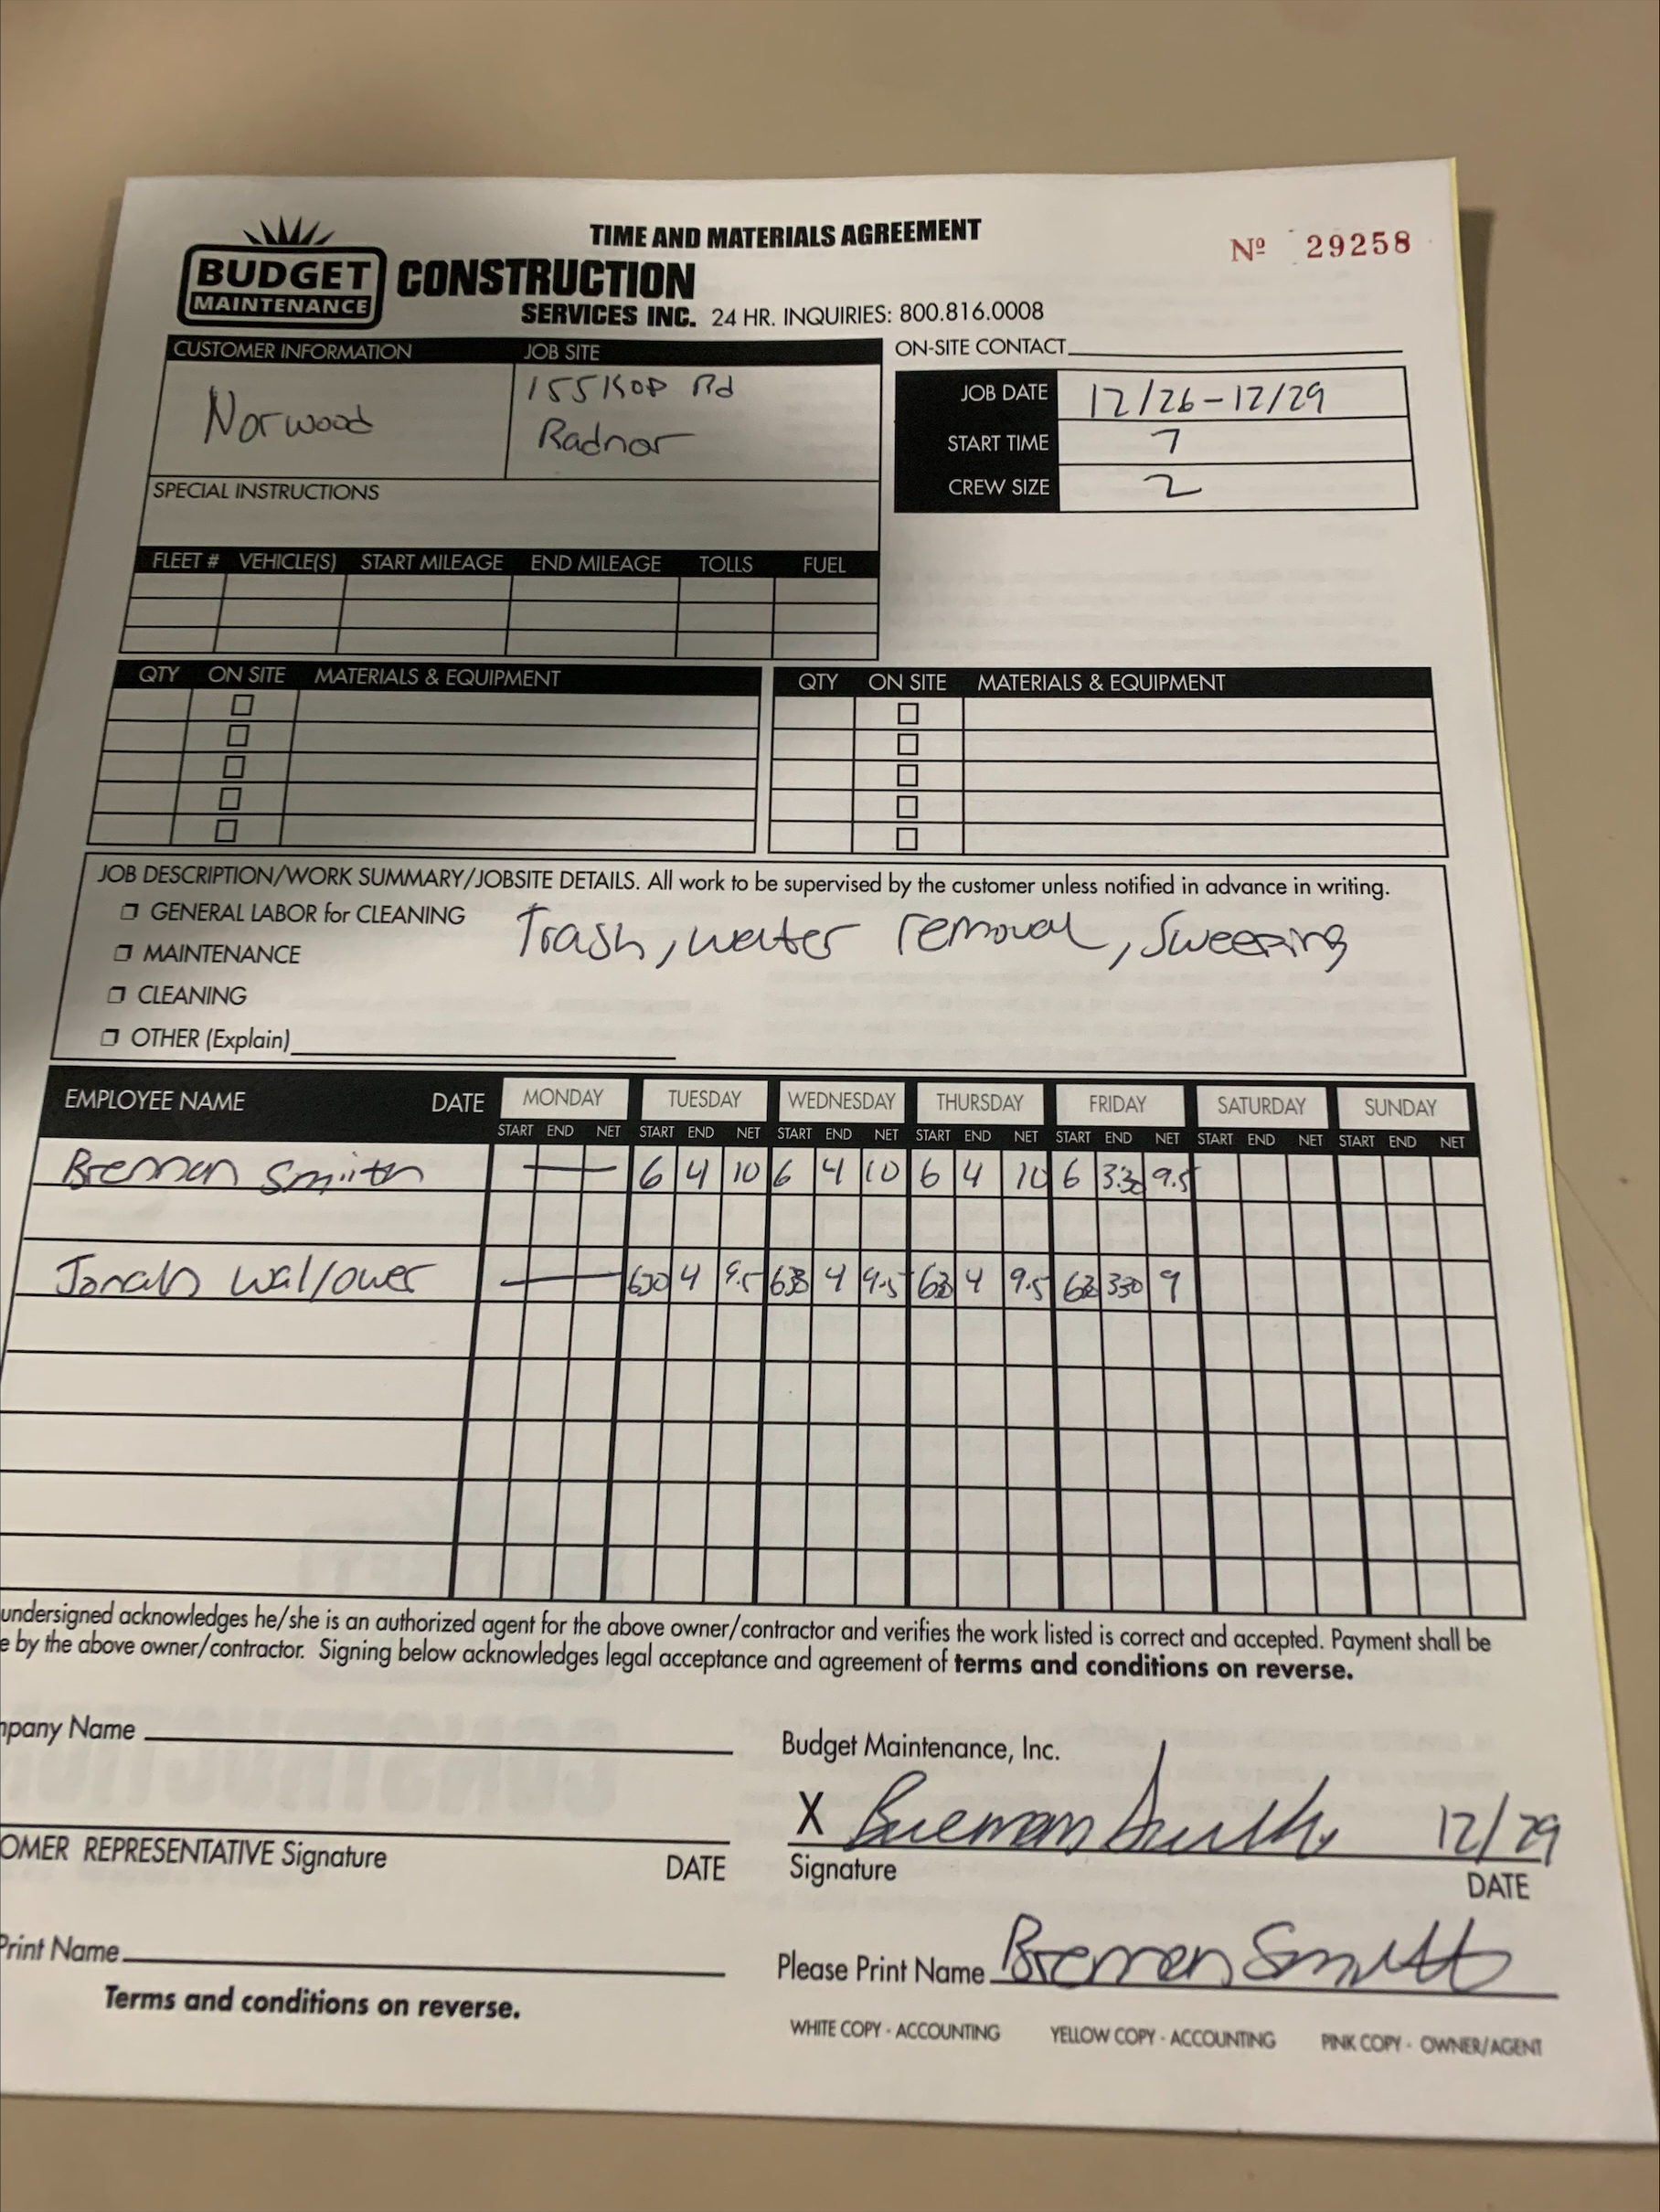 TIME AND MATERIALS AGREEMENT
Nº 29258
BUDGET
MAINTENANCE
CONSTRUCTION
SERVICES INC. 24 HR. INQUIRIES: 800.816.0008
CUSTOMER INFORMATION JOB SITE
Norwood
155 KOP Rd
Radnor
ON-SITE CONTACT
JOB DATE 12/26-12/29
START TIME 7
CREW SIZE 2
SPECIAL INSTRUCTIONS
FLEET # VEHICLE(S) START MILEAGE END MILEAGE TOLLS FUEL
QTY ON SITE MATERIALS & EQUIPMENT QTY ON SITE MATERIALS & EQUIPMENT
JOB DESCRIPTION/WORK SUMMARY/JOBSITE DETAILS. All work to be supervised by the customer unless notified in advance in writing.
GENERAL LABOR for CLEANING
Trash, water removal, Sweeping
MAINTENANCE
CLEANING
OTHER (Explain)
EMPLOYEE NAME DATE MONDAY TUESDAY WEDNESDAY THURSDAY FRIDAY SATURDAY SUNDAY
START END NET START END NET START END NET START END NET START END NET START END NET START END NET
Brennan Smith 6 4 10 6 4 10 6 4 10 6 3:30 9.5
Jonah Wallower 630 4 9.5 630 4 9.5 630 4 9.5 630 330 9
undersigned acknowledges he/she is an authorized agent for the above owner/contractor and verifies the work listed is correct and accepted. Payment shall be
e by the above owner/contractor. Signing below acknowledges legal acceptance and agreement of terms and conditions on reverse.
mpany Name
Budget Maintenance, Inc.
X Brennan Smith 12/29
OMER REPRESENTATIVE Signature DATE
Signature DATE
Print Name
Please Print Name Brennan Smith
Terms and conditions on reverse.
WHITE COPY - ACCOUNTING YELLOW COPY - ACCOUNTING PINK COPY - OWNER/AGENT